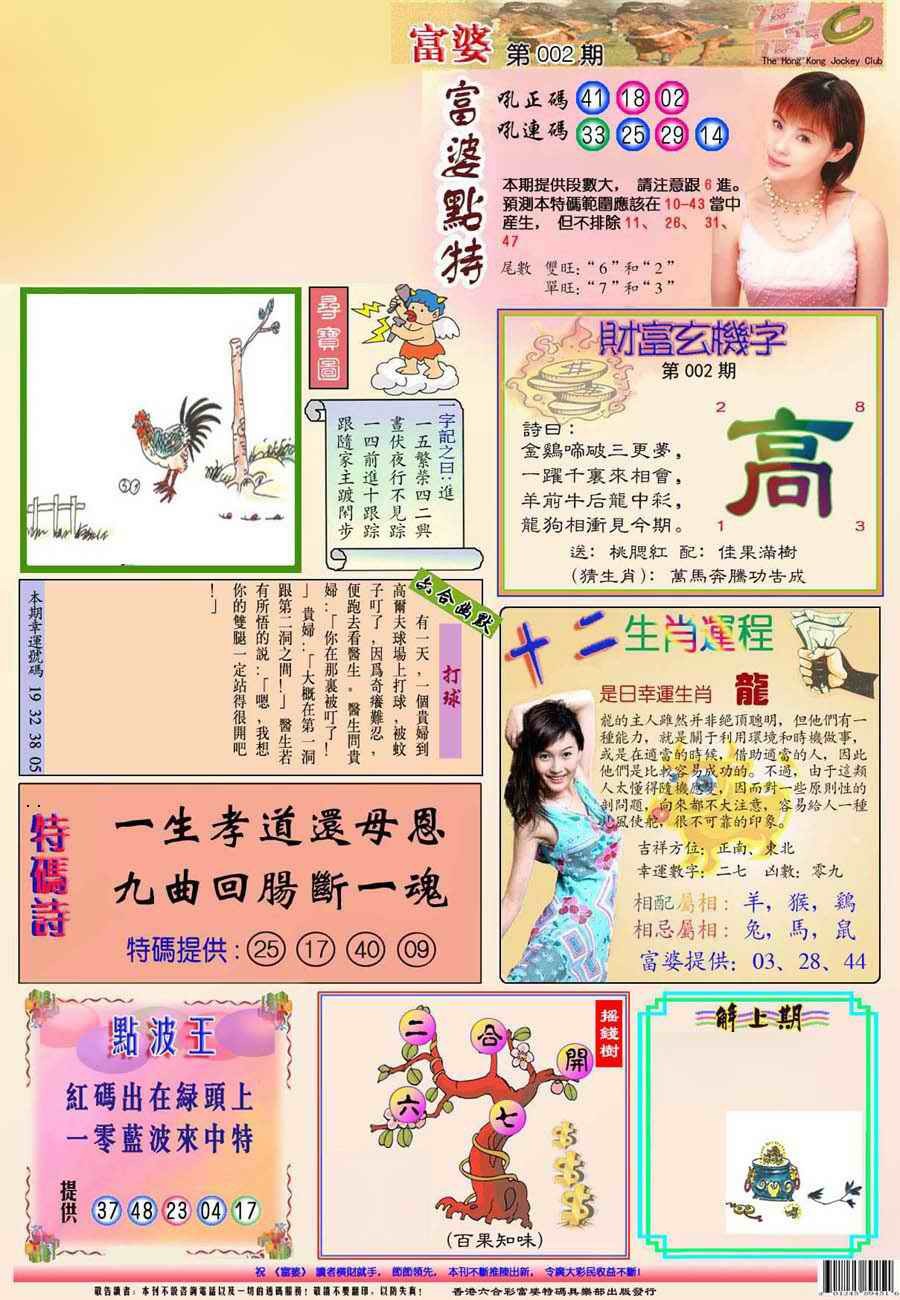 富婆 第002期
The Hong Kong Jockey Club
富婆點特
吼正碼 41 18 02
吼連碼 33 25 29 14
本期提供段數大，請注意跟6進。
預測本特碼範圍應該在10-43當中
産生，但不排除11、26、31、
47
尾數 雙旺：“6”和“2”
單旺：“7”和“3”
尋寶圖
一字記之曰：進
一五繁榮四二興
晝伏夜行不見踪
一四前進十跟踪
跟隨家主踱閑步
財富玄機字
第002期
詩曰：
金鷄啼破三更夢，
一躍千裏來相會，
羊前牛后龍中彩，
龍狗相衝見今期。
2 8
高
1 3
送：桃腮紅 配：佳果滿樹
(猜生肖)：萬馬奔騰功告成
六合幽默
打球
有一天，一個貴婦到
高爾夫球場上打球，被蚊
子叮了，因爲奇癢難忍，
便跑去看醫生。醫生問貴
婦：「你在那裏被叮了！
」貴婦：「大概在第一洞
跟第二洞之間！」醫生若
有所悟的說：「嗯，我想
你的雙腿一定站得很開吧
！」
本期幸運號碼 19 32 38 05
十二生肖運程
是日幸運生肖 龍
龍的主人雖然并非絕頂聰明，但他們有一
種能力，就是關于利用環境和時機做事，
或是在適當的時候，借助適當的人，因此
他們是比較容易成功的。不過，由于這類
人太懂得隨機應變，因而對一些原則性的
問題，向來都不大注意，容易給人一種
見風使舵，很不可靠的印象。
吉祥方位：正南、東北
幸運數字：二七 凶數：零九
相配屬相：羊，猴，鷄
相忌屬相：兔，馬，鼠
富婆提供：03、28、44
特碼詩
一生孝道還母恩
九曲回腸斷一魂
特碼提供：25 17 40 09
點波王
紅碼出在緑頭上
一零藍波來中特
提供 37 48 23 04 17
摇錢樹
二 合 開
六 七
(百果知味)
解上期
祝《富婆》讀者橫財就手，節節領先，本刊不斷推陳出新，令廣大彩民收益不斷！
敬告讀者：本刊不設咨詢電話以及一切的透碼服務！敬請不要翻印，以防失真！ 香港六合彩富婆特碼俱樂部出版發行